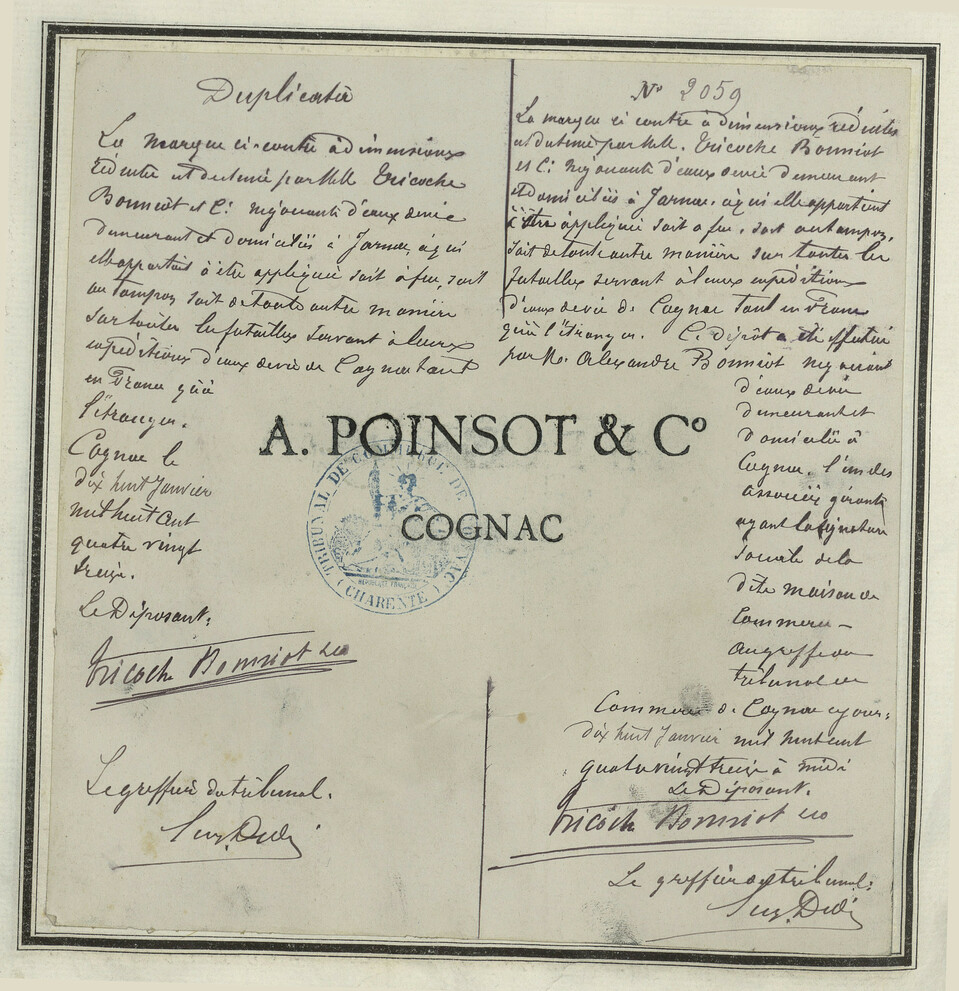 Duplicata
La marque ci-contre à dimensions
réduites est destinée par MM. Tricoche
Bonniot et Cie négociants d'eaux de vie
demeurant et domiciliés à Jarnac, à qui
elle appartient à être appliquée soit à feu, soit
au tampon soit de toute autre manière
sur toutes les futailles servant à leurs
expéditions d'eaux de vie de Cognac tant
en France qu'à
l'étranger.
Cognac le
dix huit Janvier
mil huit cent
quatre vingt
treize.
Le Déposant:
Tricoche Bonniot & Co
Le greffier du tribunal.
No 2059
La marque ci contre à dimensions réduites
est destinée par MM. Tricoche Bonniot
et Cie négociants d'eaux de vie demeurant
et domiciliés à Jarnac, à qui elle appartient
à être appliquée soit à feu, soit au tampon,
soit de toute autre manière sur toutes les
futailles servant à leurs expéditions
d'eaux de vie de Cognac tant en France
qu'à l'étranger. Ce Dépôt a été effectué
par M. Alexandre Bonniot négociant
d'eaux de vie
demeurant et
domicilié à
Cognac, l'un des
associés gérants
ayant la signature
sociale de la
dite maison de
Commerce —
au greffe du
tribunal de
Commerce de Cognac ce jour:
dix huit Janvier mil huit cent
quatre vingt treize à midi
Le Déposant.
Tricoche Bonniot & Co
Le greffier du tribunal:
A. POINSOT & Co
COGNAC
TRIBUNAL DE COMMERCE DE COGNAC
RÉPUBLIQUE FRANÇAISE
(CHARENTE)